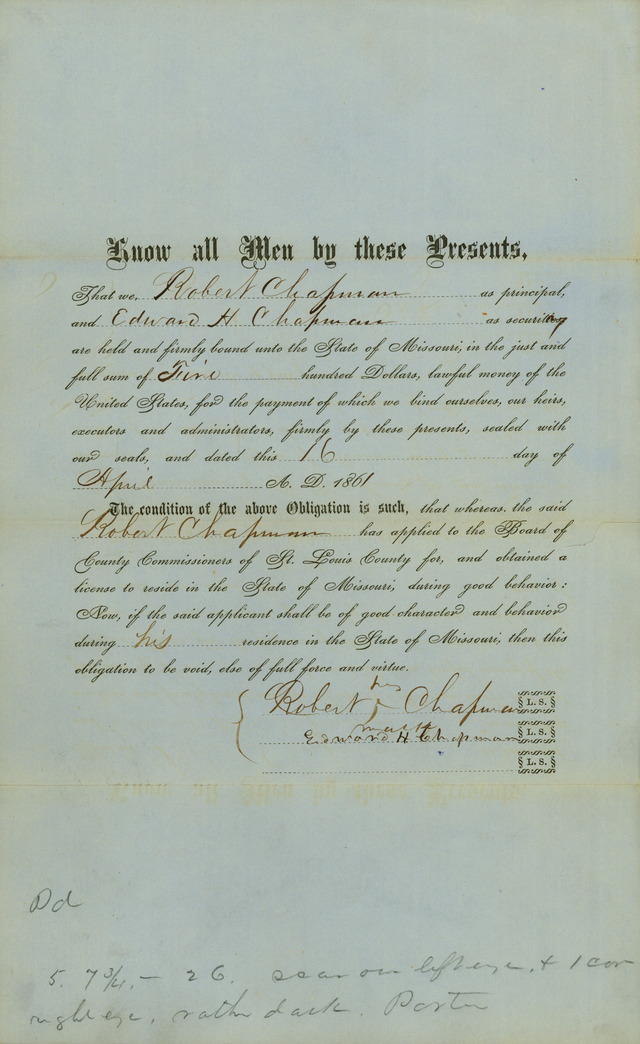 Know all Men by these Presents,
That we, Robert Chapman as principal,
and Edward H Chapman as security
are held and firmly bound unto the State of Missouri, in the just and
full sum of Five hundred Dollars, lawful money of the
United States, for the payment of which we bind ourselves, our heirs,
executors and administrators, firmly by these presents, sealed with
our seals, and dated this 16 day of
April A. D. 1861
The condition of the above Obligation is such, that whereas, the said
Robert Chapman has applied to the Board of
County Commissioners of St. Louis County for, and obtained a
license to reside in the State of Missouri, during good behavior:
Now, if the said applicant shall be of good character and behavior
during his residence in the State of Missouri, then this
obligation to be void, else of full force and virtue.
his
Robert X Chapman § L. S. §
mark
Edward H Chapman § L. S. §
§ L. S. §
Pd
5. 7 3/4. – 26. scar over left eye, & 1 cor
right eye, rather dark. Porter